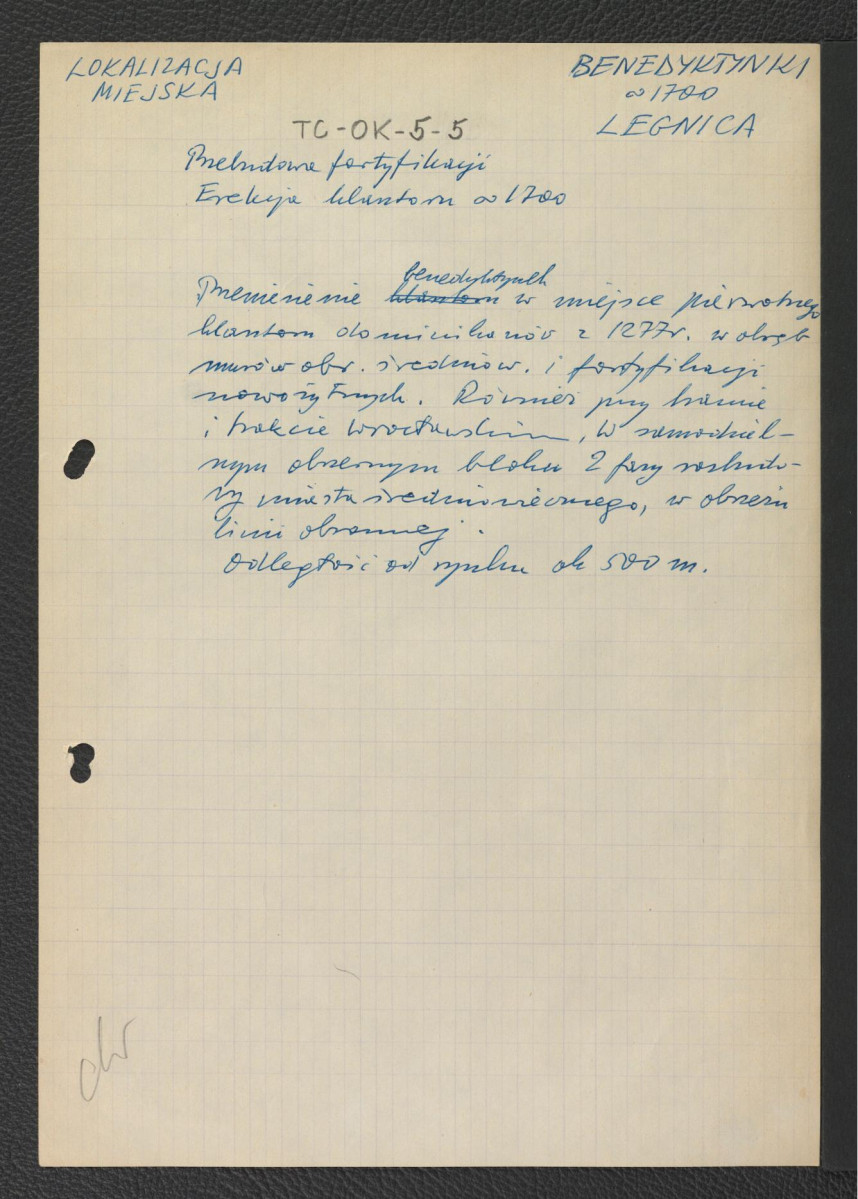 LOKALIZACJA
MIEJSKA
BENEDYKTYNKI
~1700
LEGNICA
TC-OK-5-5
Przebudowa fortyfikacji
Erekcja klasztoru ~1700
benedyktynek
Przeniesienie klasztoru w miejsce pierwotnego
klasztoru dominikanów z 1277r. w obręb
murów obr. średniow. i fortyfikacji
nowożytnych. Również przy bramie
i trakcie wrocławskim, w samodziel-
nym obszernym bloku 2 fazy rozbudo-
wy miasta średniowiecznego, w obrzeżu
linii obronnej.
Odległość od rynku ok 500 m.